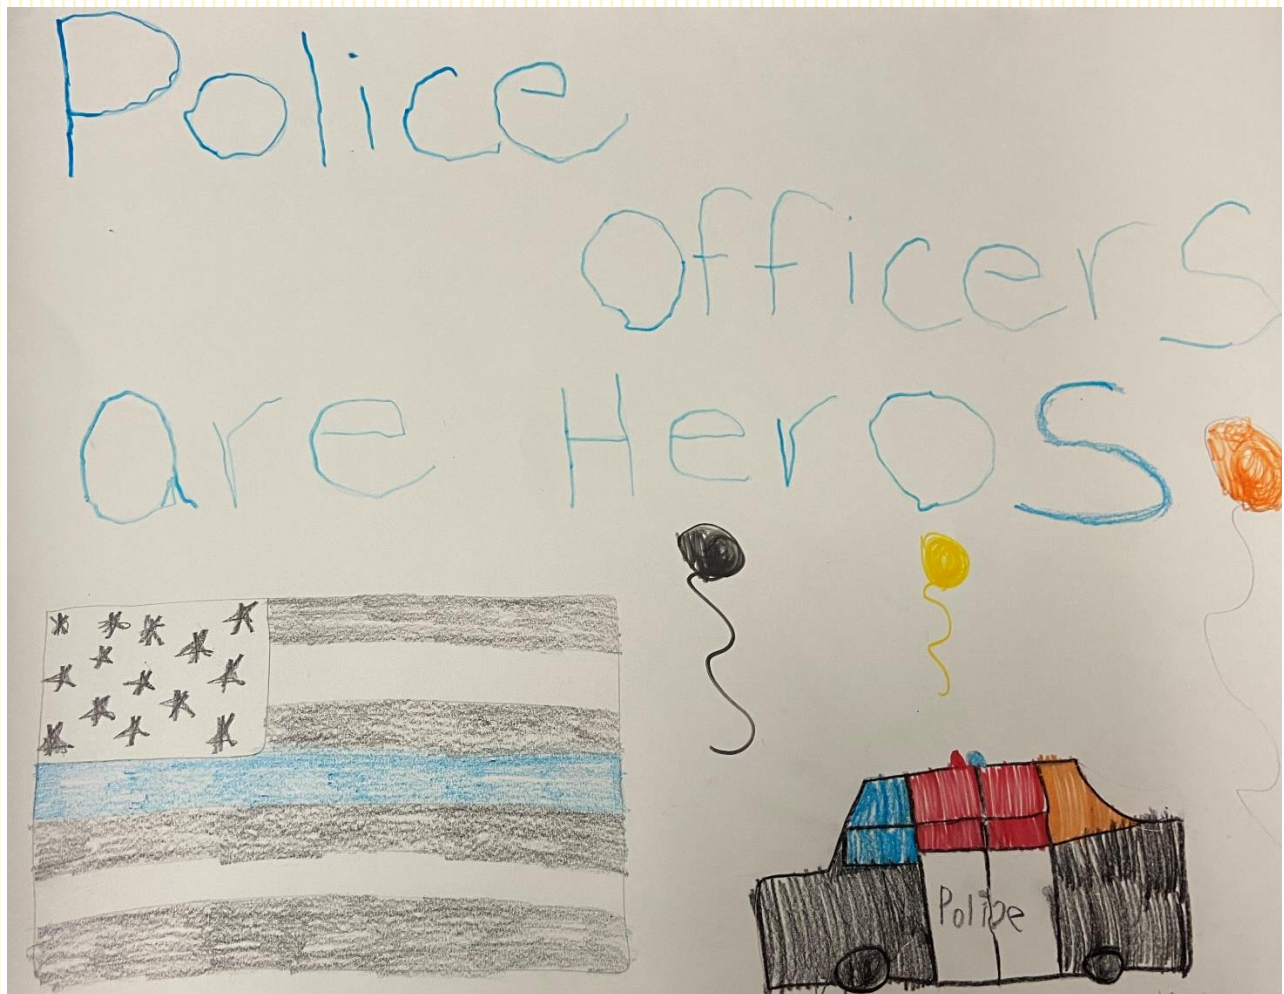 Police
Officers
are Heros
Police